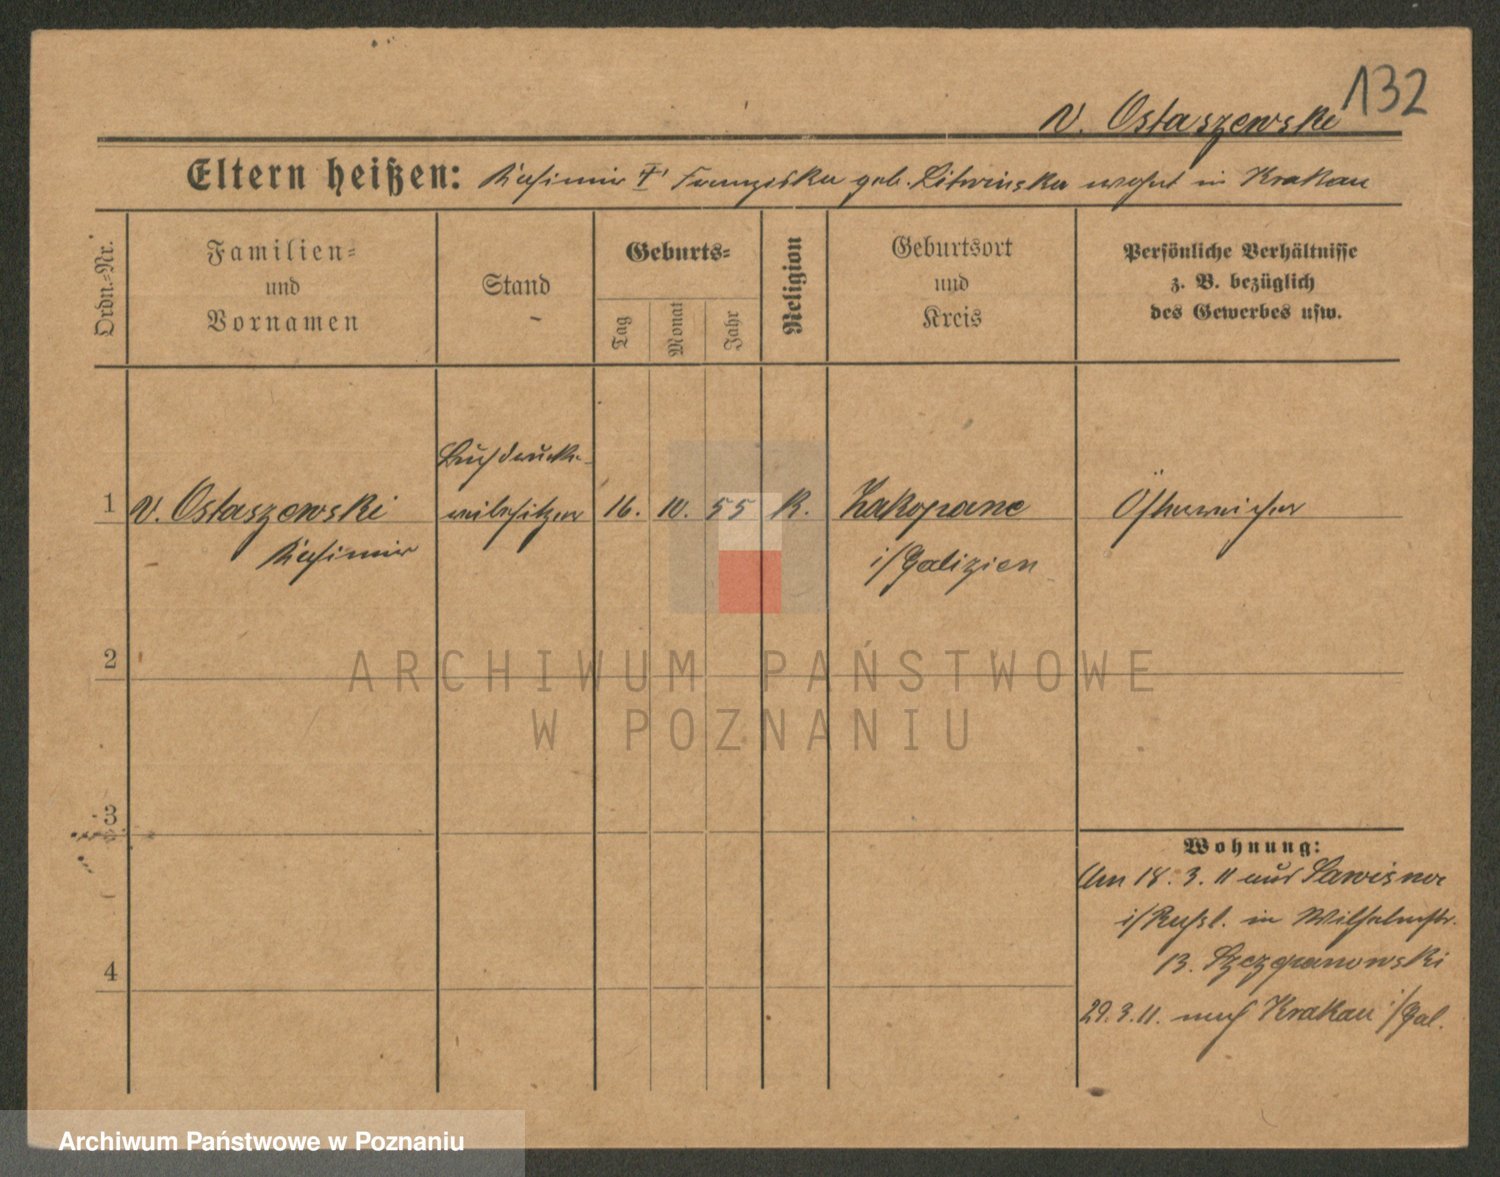 132
v. Ostaszewski
Eltern heißen: Kasimir † Franziska geb. Litwinska wohnt in Krakau
Ordn.-Nr.
Familien- und Vornamen
Stand
Geburts-
Tag
Monat
Jahr
Religion
Geburtsort und Kreis
Persönliche Verhältnisse
z. B. bezüglich
des Gewerbes usw.
1
v. Ostaszewski
Kasimir
Buchdrucke-
reibesitzer
16.
10.
55
K.
Zakopane
i/Galizien
Österreicher
2
3
4
Wohnung:
Am 18. 3. 11 aus
i/Russl. in Wilhelmstr.
13. Szczepanowski
29. 3. 11. nach Krakau i/Gal.
ARCHIWUM PAŃSTWOWE
W POZNANIU
Archiwum Państwowe w Poznaniu